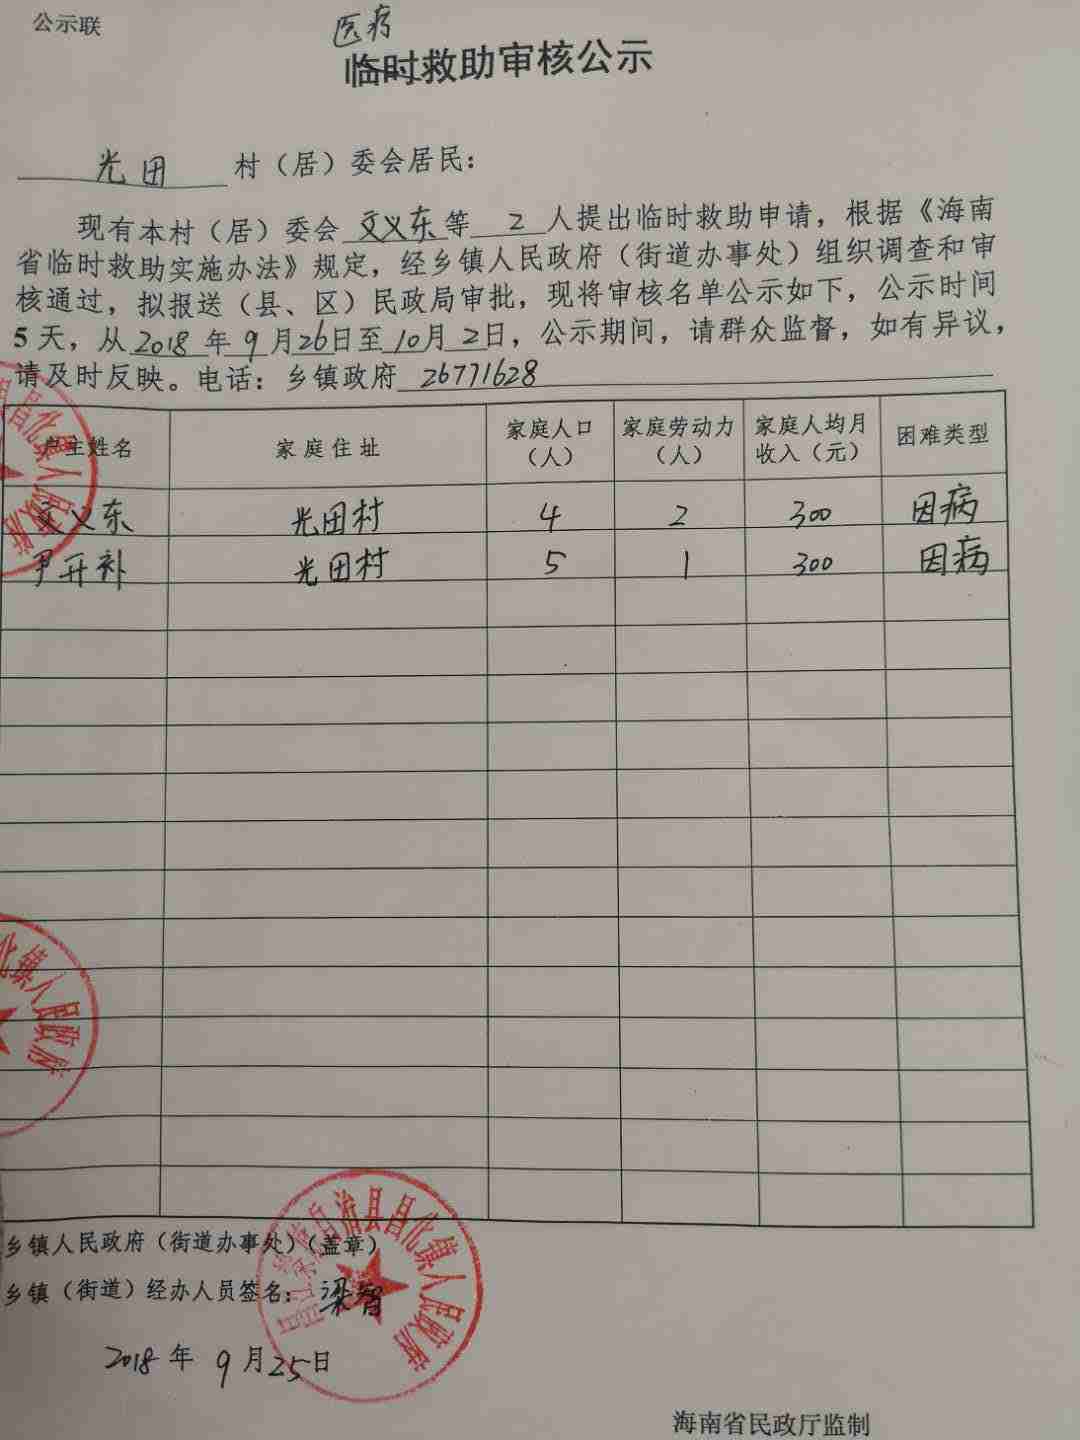 公示联
医疗
临时救助审核公示
光田 村（居）委会居民：
现有本村（居）委会 文义东 等 2 人提出临时救助申请，根据《海南
省临时救助实施办法》规定，经乡镇人民政府（街道办事处）组织调查和审
核通过，拟报送（县、区）民政局审批，现将审核名单公示如下，公示时间
5 天，从 2018 年 9 月 26 日至 10 月 2 日，公示期间，请群众监督，如有异议，
请及时反映。电话：乡镇政府 26771628
户主姓名 家庭住址 家庭人口（人） 家庭劳动力（人） 家庭人均月收入（元） 困难类型
文义东 光田村 4 2 300 因病
尹开补 光田村 5 1 300 因病
化镇人民政府
乡镇人民政府（街道办事处）（盖章）
乡镇（街道）经办人员签名：梁智
自治县昌化镇人民政府
2018 年 9 月 25 日
海南省民政厅监制